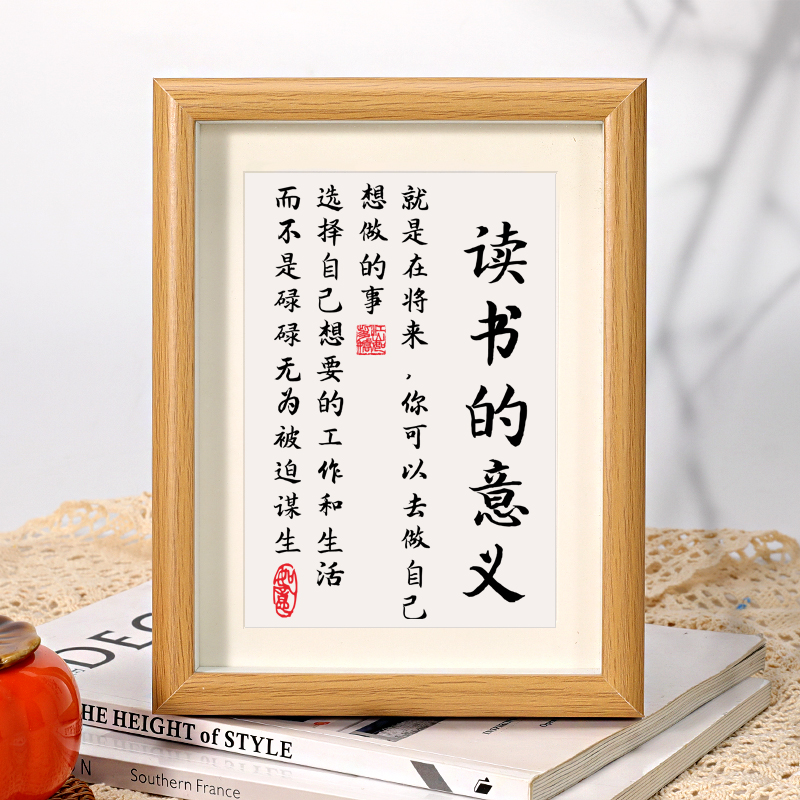 读书的意义
就是在将来，你可以去做自己
想做的事
选择自己想要的工作和生活
而不是碌碌无为被迫谋生
如意
DEC
HE HEIGHT of STYLE
N
Southern France